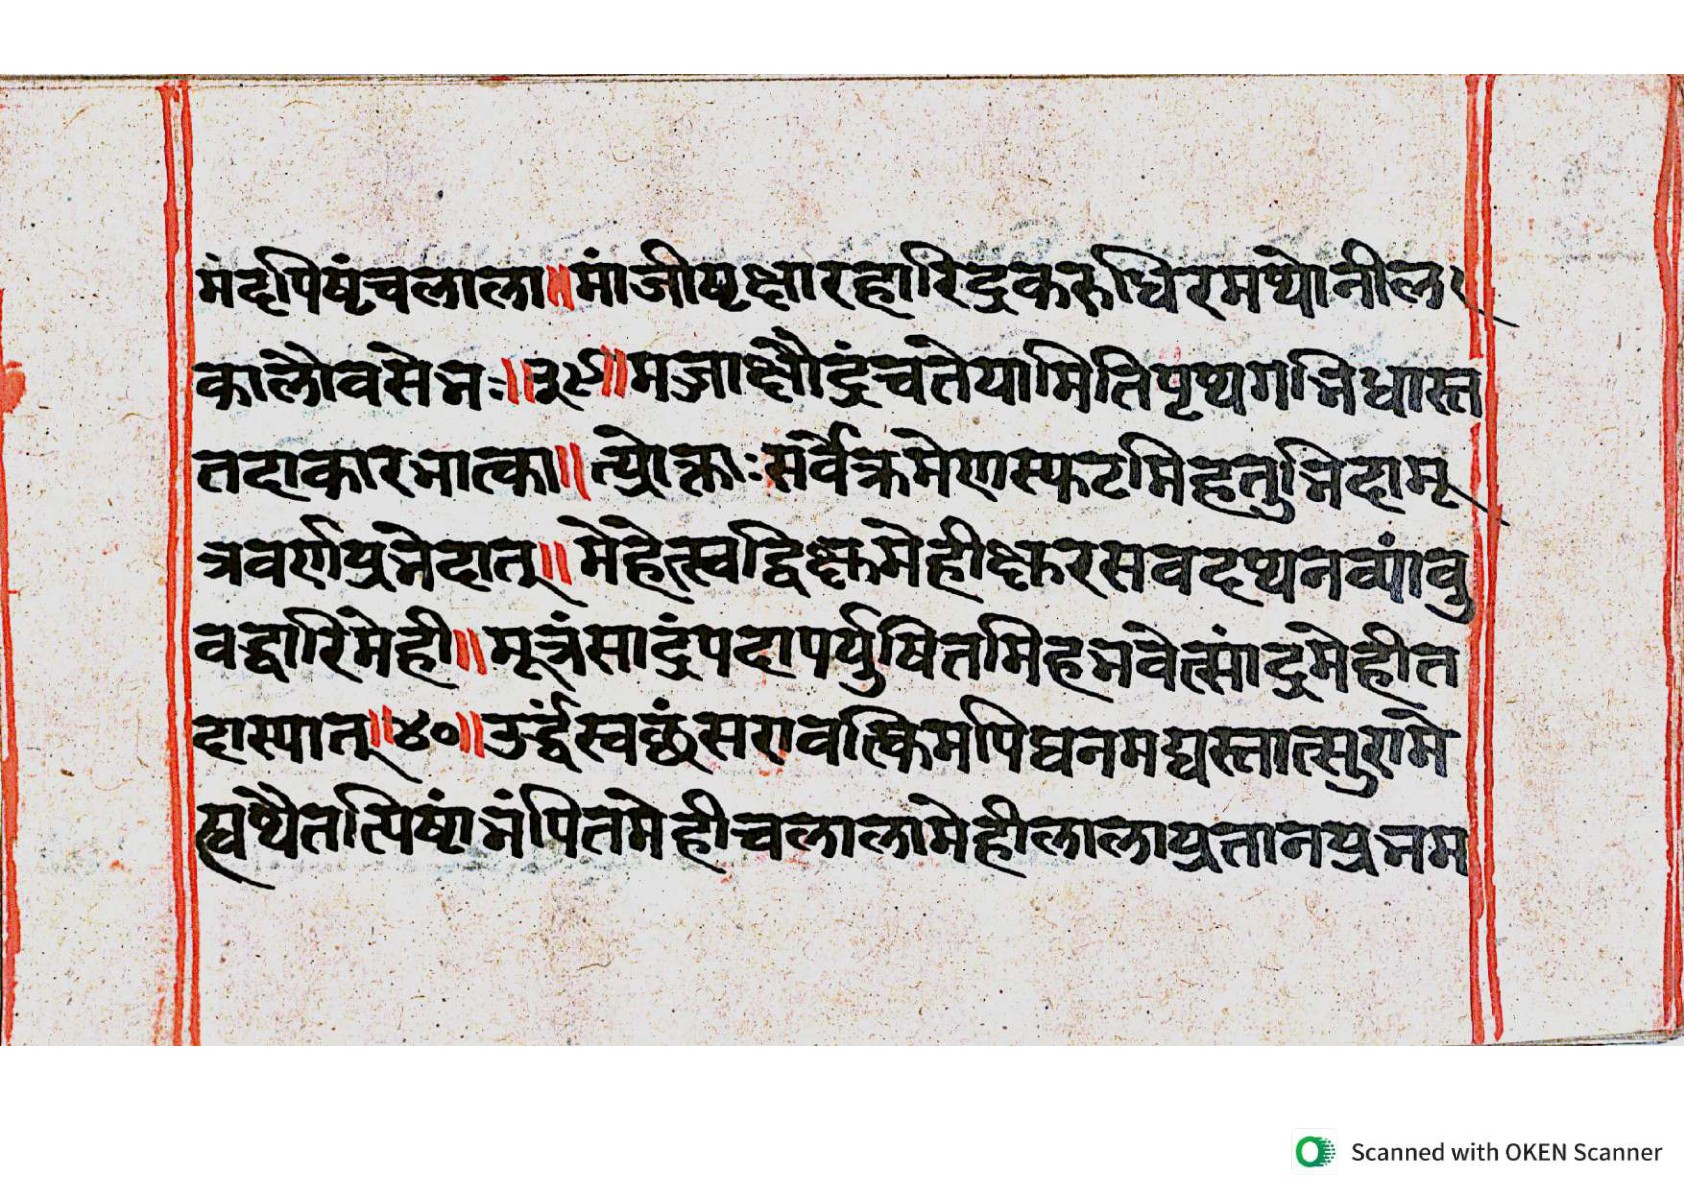 मंदपिष्टंचलाला॥मांजीष्टक्षारहारिद्रकरुधिरमथोनील
कालौवसेभः॥३९॥मज्जाक्षौद्रंचतेयामितिपृथगभिधास्त
तदाकारभात्का॥त्प्रोक्ताःसर्वेक्रमेणस्फटमिहतुभिदामू
त्रवर्णप्रभेदात्॥मेहेत्स्वद्विक्षुमेहीक्षुरसवदथनव्यांवु
वद्वारिमेही॥मूत्रंसाद्रंपदापर्युषितमिहभवेत्सांद्रमेहीत
दास्यात्॥४०॥उर्द्धंस्वछंसरावत्किमपिघनमद्यस्तात्सुरामे
ह्यथैतत्पिष्टांभंपितमेहीचलालामेहीलालाप्रतानप्रभम
Scanned with OKEN Scanner